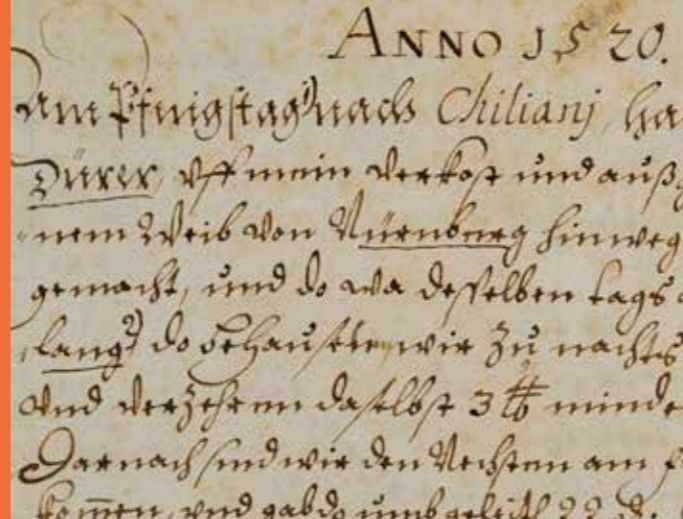 ANNO 1520.
Am Pfingstag nach Chiliani, ha
Dürer, vff mein verkost und außg
nem Weib von Nürnberg hinweg
gemacht, und do wa desselben tags
lang do behausten wir zu nachts
vnd verzehrnn daselbst 3 ℔ minde
Darnach sind wir den Nechsten am f
kommen, vnd gab do umb geleitl 22 ₰.